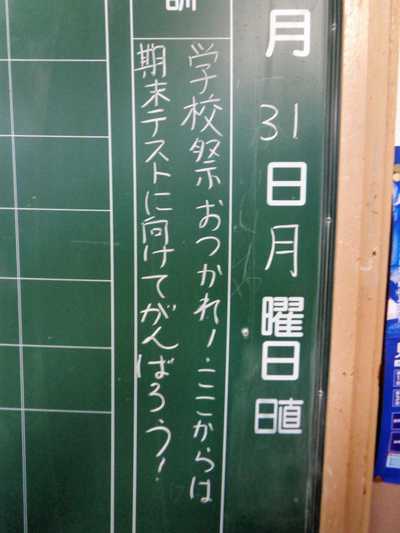 月31日月曜日
日直
訓
学校祭おつかれ!ここからは
期末テストに向けてがんばろう!